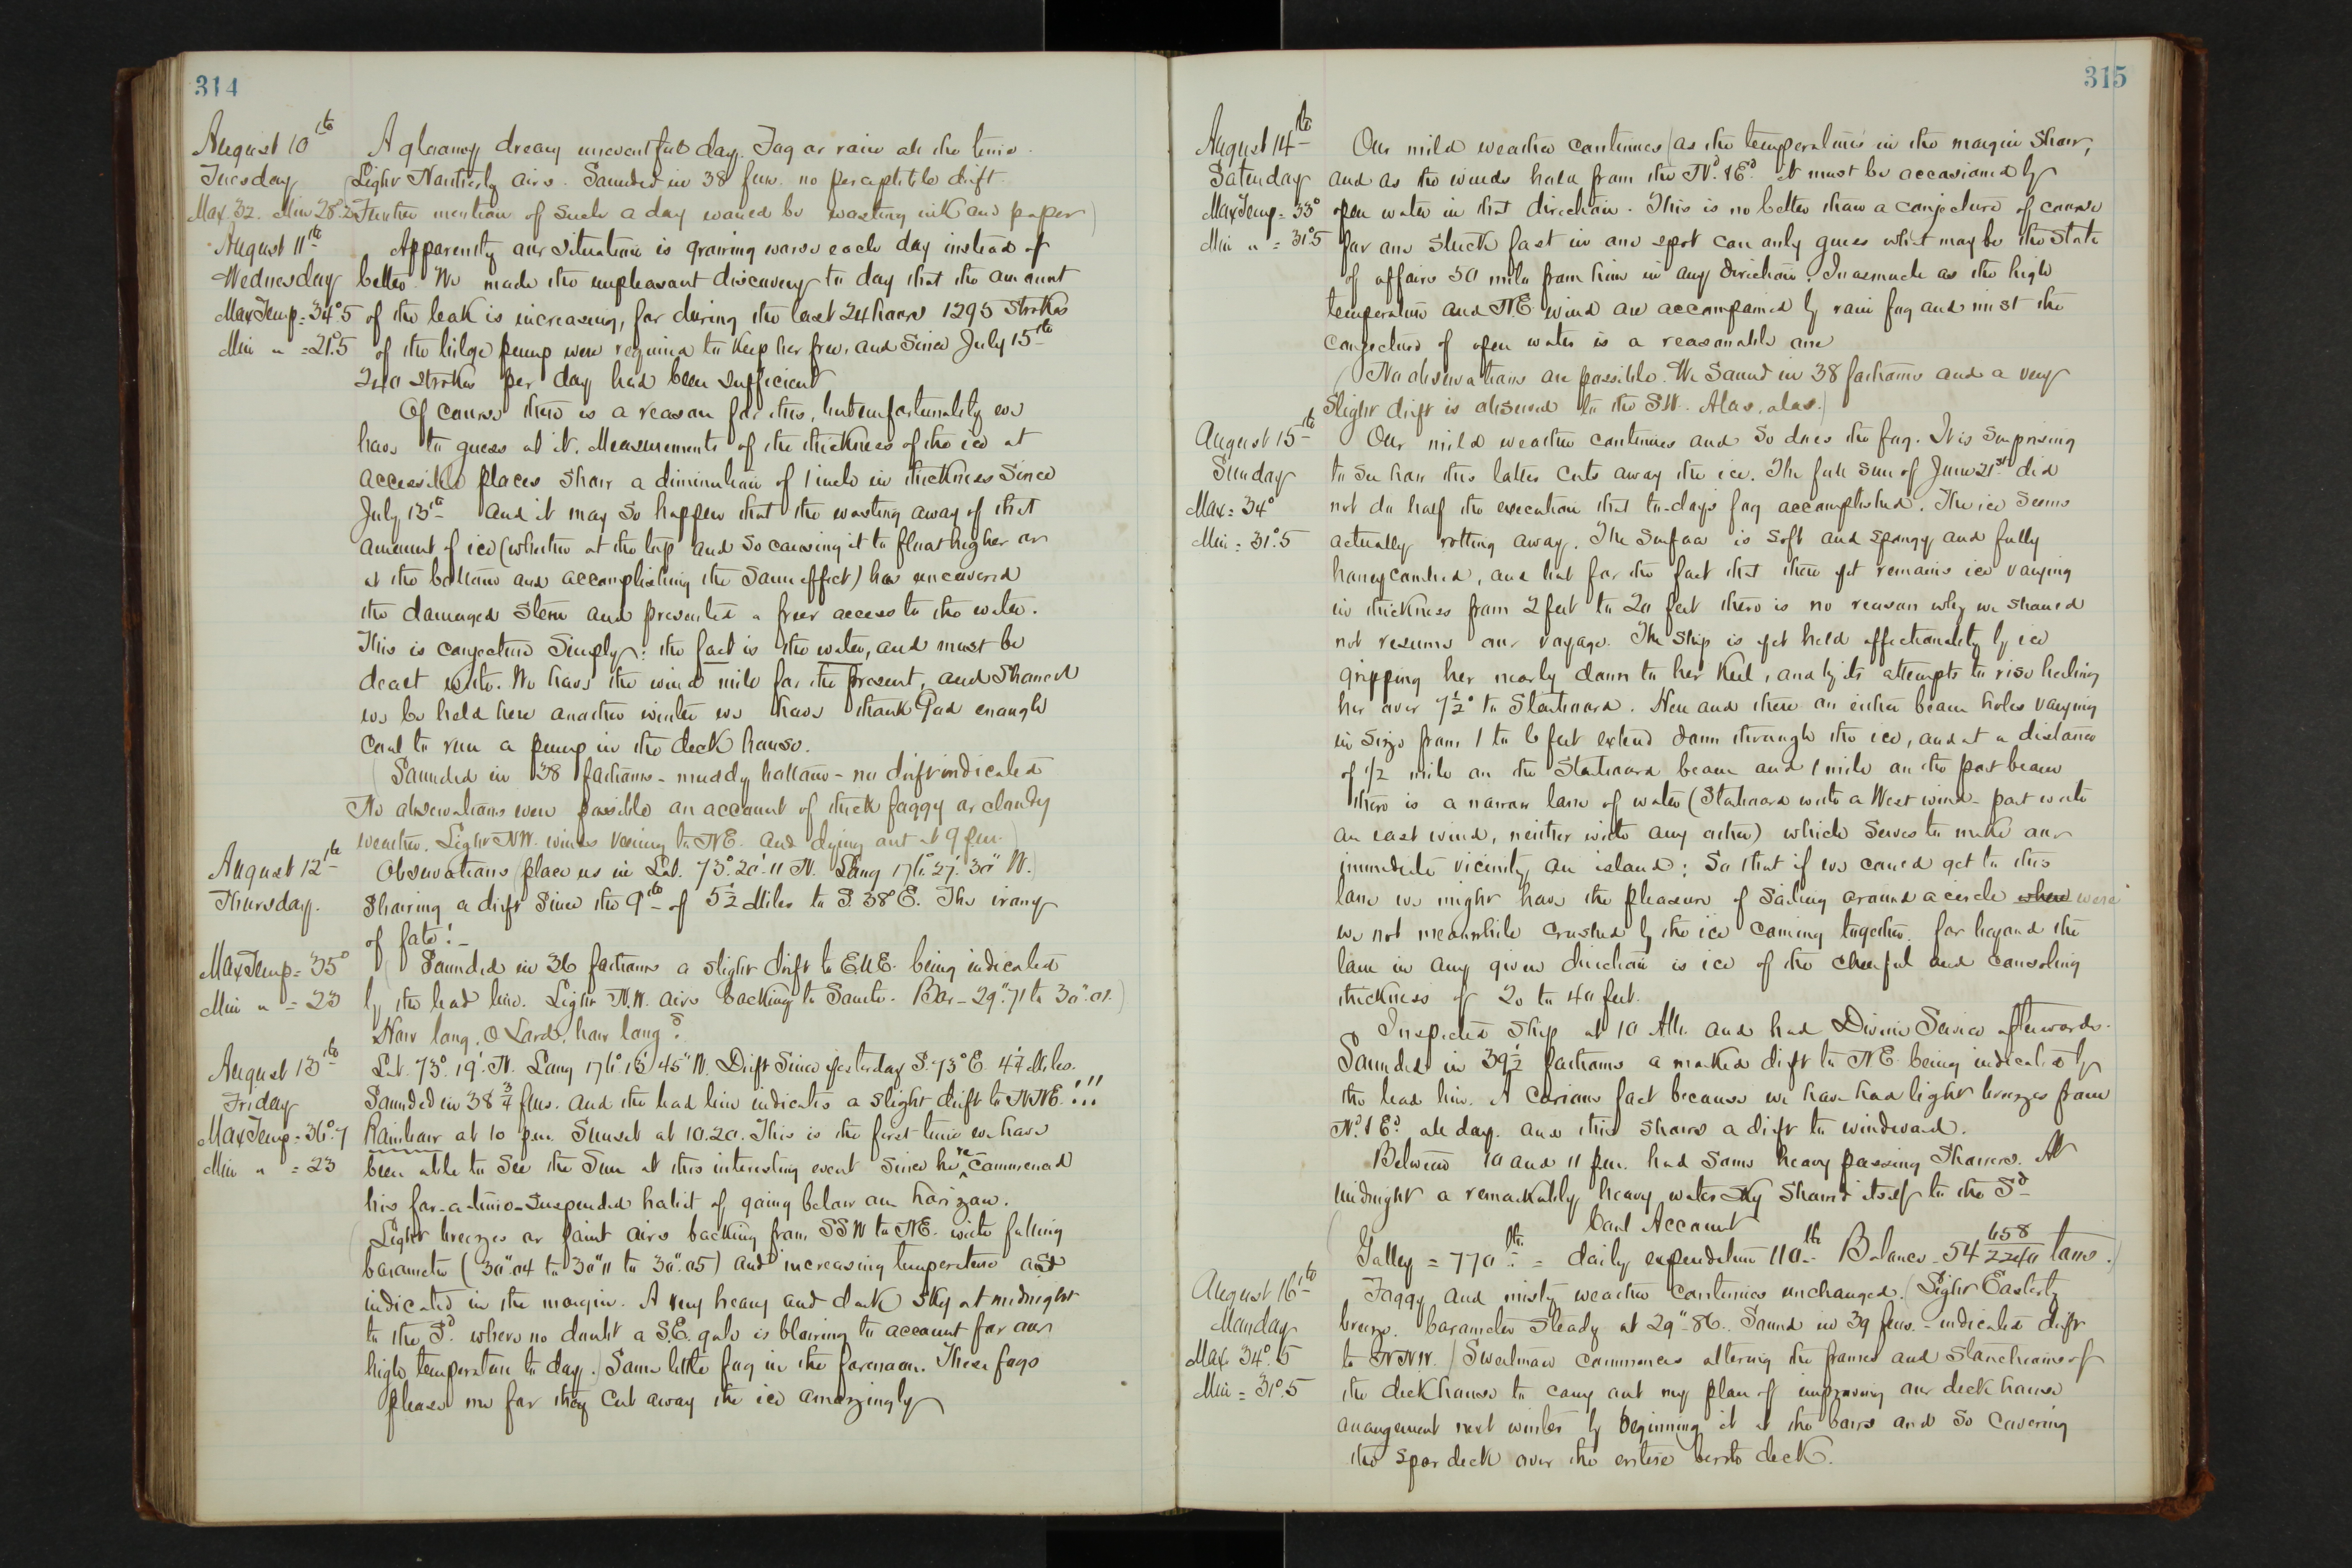 314
August 10th A gloomy dreary uneventful day. Fog or rain all the time.
Tuesday (Light Northerly airs. Sounded in 38 fms. no perceptible drift.
Max 32. Min 28.2 Further mention of such a day would be wasting ink and paper)
August 11th Apparently our situation is growing worse each day instead of
Wednesday better. We made the unpleasant discovery to day that the amount
Max Temp = 34°5 of the leak is increasing, for during the last 24 hours 1295 strokes
Min " = 21°.5 of the bilge pump were required to keep her free, and since July 15th
240 strokes per day had been sufficient
Of course there is a reason for this, but unfortunately we
have to guess at it. Measurements of the thickness of the ice at
accessible places show a diminution of 1 inch in thickness since
July 13th and it may so happen that the wasting away of that
amount of ice (whether at the top and so causing it to float higher or
at the bottom and accomplishing the same effect) has uncovered
the damaged stem and presented a freer access to the water.
This is conjecture simply: the fact is the water, and must be
dealt with. We have the wind mill for the present, and should
we be held here another winter we have thank God enough
coal to run a pump in the deck house.
(Sounded in 38 fathoms - muddy bottom - no drift indicated
No observations were possible on account of thick foggy or cloudy
weather. Light NW. winds veering to NE. and dying out at 9 pm.)
August 12th Observations (place us in Lat. 73°.20'.11 N. Long 176°.27'.30" W.)
Thursday. Showing a drift since the 9th of 5½ Miles to S. 38° E. The irony
of fate! -
Max Temp = 35° (Sounded in 36 fathoms a slight drift to ENE. being indicated
Min " = 23 by the lead line. Light N.W. airs backing to South. Bar - 29".71 to 30".01.)
How long, O Lord, how long?
August 13th Lat. 73°. 19'. N. Long 176°.15' 45" W. Drift since yesterday S. 73° E. 4¼ Miles.
Friday Sounded in 38 ¾ fms. and the lead line indicates a slight drift to NNE.!!!
Max Temp = 36°.7 Rainbow at 10 pm. Sunset at 10.20. This is the first time we have
Min " = 23 been able to see the Sun at this interesting event since he re^commenced
his for-a-time-suspended habit of going below our horizon.
(Light breezes or faint airs backing from SSW to NE. with falling
barometer (30".04 to 30".11 to 30".05) and increasing temperature as
indicated in the margin. A very heavy and dark sky at midnight
to the Sd. where no doubt a S.E. gale is blowing to account for our
high temperature to day.) Some little fog in the forenoon. These fogs
please me for they cut away the ice amazingly
315
August 14th Our mild weather continues (as the temperatures in the margin show,
Saturday and as the winds have from the Nd. & Ed. it must be occasioned by
Max Temp = 33° open water in that direction. This is no better than a conjecture of course
Min " = 31°5 for one stuck fast in one spot can only guess what may be the state
of affairs 50 miles from him in any direction. Inasmuch as the high
temperature and N.E. wind are accompanied by rain fog and mist the
conjecture of open water is a reasonable one
(No observations are possible. We sound in 38 fathoms and a very
slight drift is observed to the SW. Alas, alas.)
August 15th Our mild weather continues and so does the fog. It is surprising
Sunday to see how this latter cuts away the ice. The full sun of June 21st did
Max = 34° not do half the execution that to-days fog accomplished. The ice seems
Min = 31°.5 actually rotting away. The surface is soft and spongy and fully
honeycombed, and but for the fact that there yet remains ice varying
in thickness from 2 feet to 20 feet there is no reason why we should
not resume our voyage. The ship is yet held affectionately by ice
gripping her nearly down to her keel, and by its attempts to rise heeling
her over 7½° to Starboard. Here and there on either beam holes varying
in size from 1 to 6 feet extend down through the ice, and at a distance
of ½ mile on the Starboard beam and 1 mile on the port beam
there is a narrow lane of water (Starboard with a West wind - port with
an east wind, neither with any other) which serves to make our
immediate vicinity an island; so that if we could get to this
lane we might have the pleasure of sailing around a circle when were
we not meanwhile crushed by the ice coming together, for beyond the
lane in any given direction is ice of the cheerful and consoling
thickness of 20 to 40 feet.
Inspected ship at 10 AM. and had Divine Service afterwards.
Sounded in 39½ fathoms a marked drift to NE being indicated by
the lead line. A curious fact because we have had light breezes from
Nd. & Ed. all day. and this shows a drift to windward.
Between 10 and 11 pm. had some heavy passing showers. At
midnight a remarkably heavy water sky showed itself to the Sd
Coal Account
(Galley = 770 lbs. = daily expenditure 110 lbs Balance - 54 658/2240 tons.)
August 16th Foggy and misty weather continues unchanged. (Light Easterly
Monday breeze. barometer steady at 29".86. Sound in 39 fms. - indicated drift
Max 34°.5 to NNW.) Sweetman commences altering the frames and stanchions of
Min = 31°.5 the deck house to carry out my plan of improving our deck house
arrangement next winter by beginning it at the bows and so covering
the spar deck over the entire berth deck.